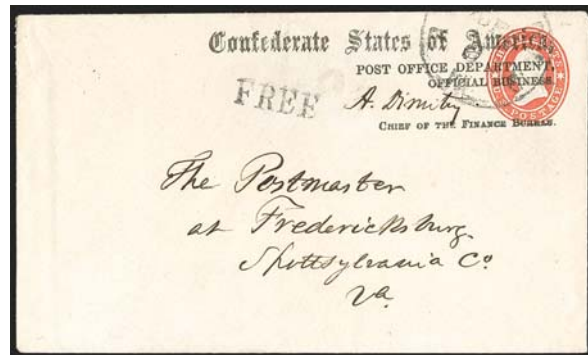 Confederate States of America,
POST OFFICE DEPARTMENT,
OFFICIAL BUSINESS.
FREE
A. Dimitry
CHIEF OF THE FINANCE BUREAU.
POSTAGE
The Postmaster
at Fredericksburg.
Spottsylvania Co
Va.